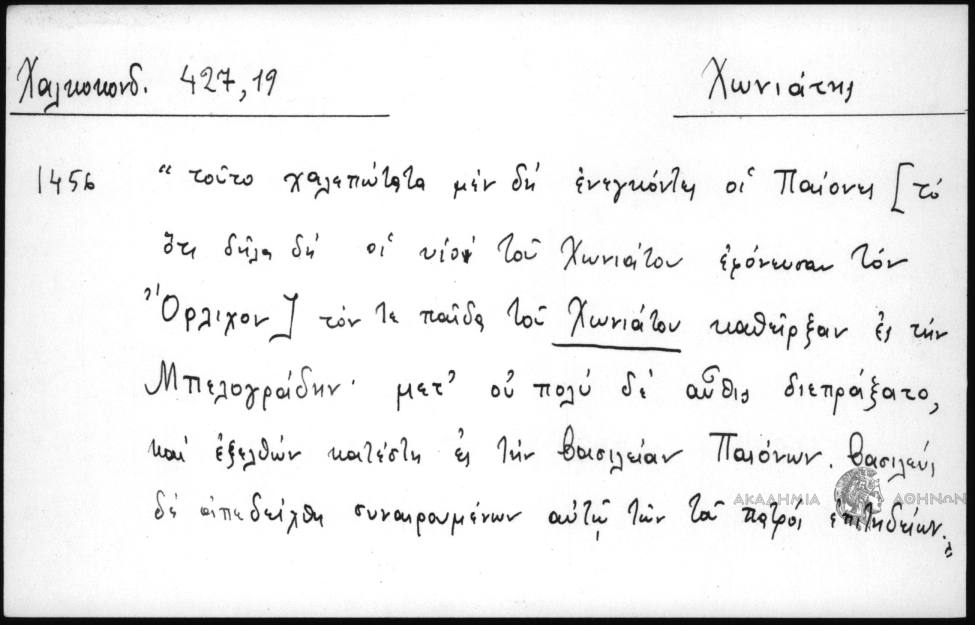 Χαλκοκονδ. 427,19
Χωνιάτης
1456 “τοῦτο χαλεπώτατα μέν δή ἐνεγκόντες οἱ Παίονες [τό
ὅτι δηλαδή οἱ υἱοί τοῦ Χωνιάτου ἐφόνευσαν τόν
Ὄρλιχον] τόν τε παῖδα τοῦ Χωνιάτου καθεῖρξαν ἐς τήν
Μπελογράδην· μετ’ οὐ πολύ δέ αὖθις διεπράξατο,
καί ἐξελθών κατέστη ἐς τήν βασιλείαν Παιόνων. βασιλεύς
δέ ἀπεδείχθη συναιρουμένων αὐτῷ τῶν τοῦ πατρός ἐπιτηδείων.”
ΑΚΑΔΗΜΙΑ ΑΘΗΝΩΝ